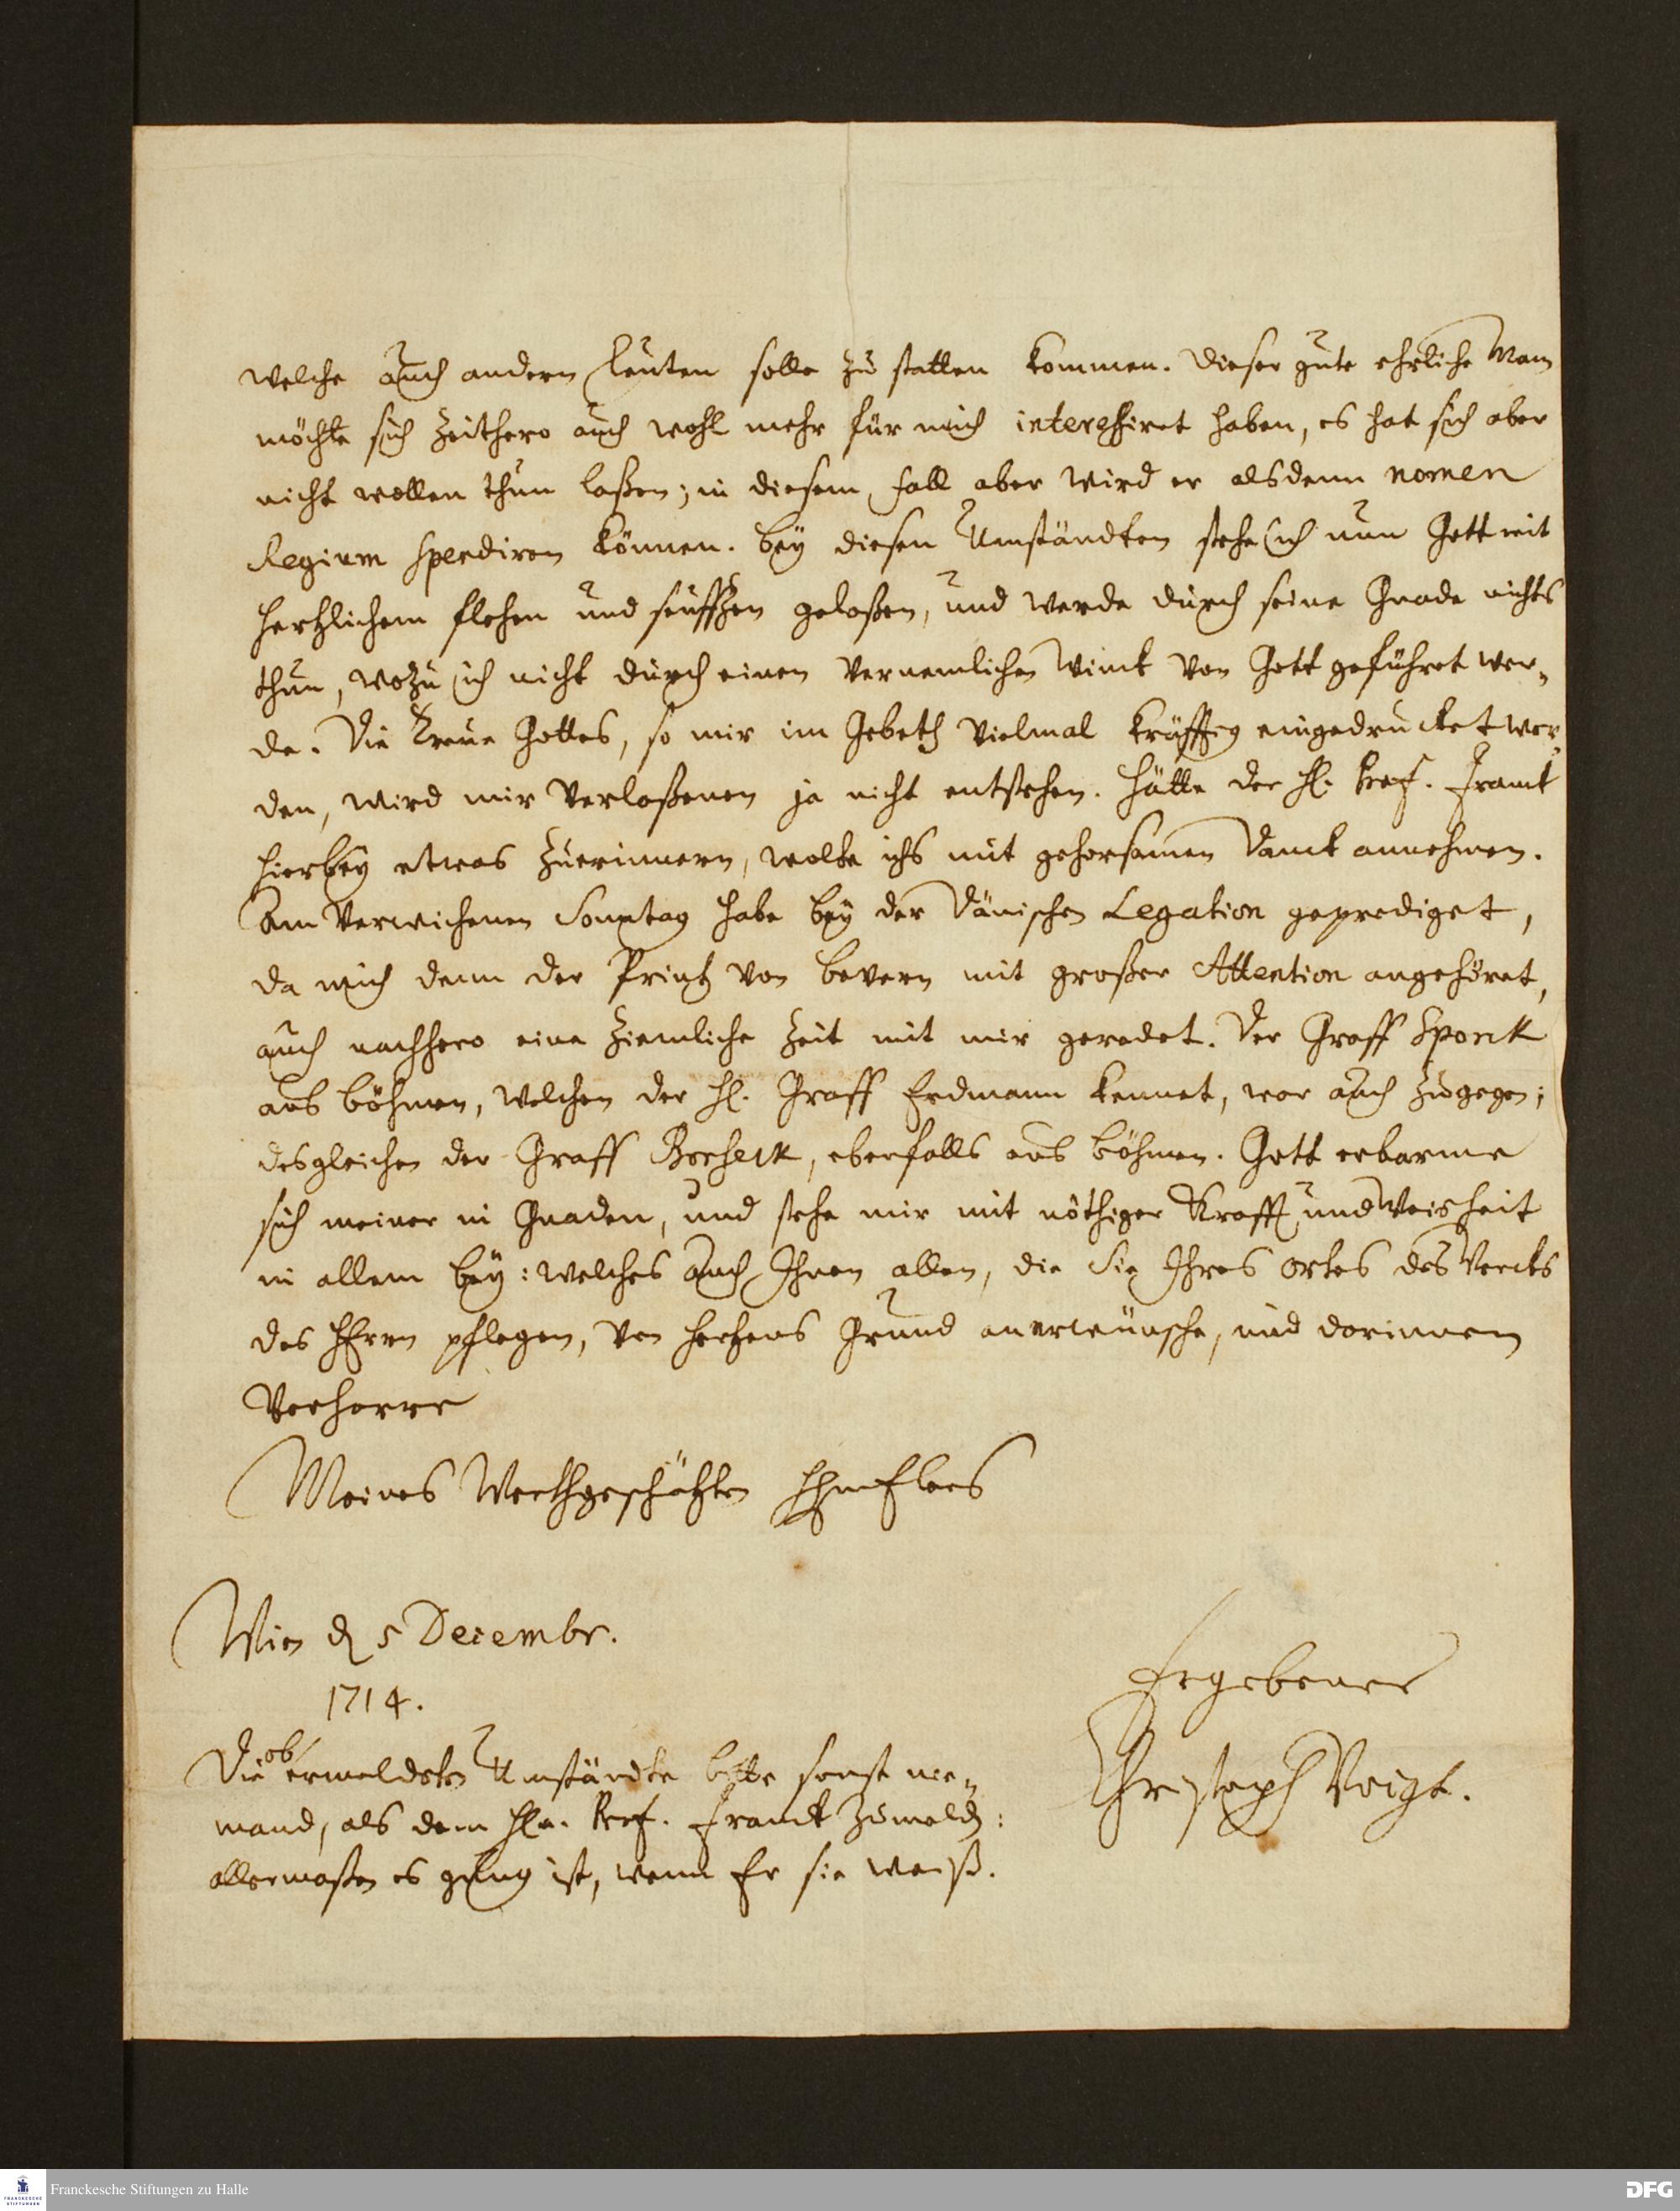 welche auch andern Leuten solle zu statten kommen. Dieser gute ehrliche Mann
möchte sich zeithero auch wohl mehr für mich interessiret haben, es hat sich aber
nicht wollen thun laßen; in diesem fall aber wird er alsdenn nomen
Regium spendiren können. bey diesen Umständten stehe ich nun Gott mit
hertzlichem flehen und seufftzen gelaßen, und werde durch seine Gnade nichts
thun, wozu ich nicht durch einen vernemlichen Winck von Gott geführet wer„
de. Die Treue Gottes, so mir im Gebeth vielmal kräfftig eingedrucket wor„
den, wird mir Verlaßenen ja nicht entstehen. Hätte der H. Prof. Franck
hierbey etwas zuerinnern, wolte ichs mit gehorsamen Danck annehmen.
Am verwichenen Sonntag habe bey der Dänischen Legation geprediget,
da mich denn der Printz von Bevern mit großer Attention angehöret,
auch nachhero eine ziemliche Zeit mit mir geredet. Der Graff Sporck
aus Böhmen, welchen der H. Graff Erdmann kennet, war auch zugegen;
desgleichen der Graff, ebenfalls aus Böhmen. Gott erbarme
sich meiner in Gnaden, und stehe mir mit nöthiger Krafft und Weisheit
in allem bey: welches auch Ihnen allen, die Sie Ihres Ortes des Wercks
des HErrn pflegen, von Hertzens Grund anerwünsche, und darinnen
Verharre
Meines Werthgeschätzten
Wien d 5 Decembr.
1714.
Ergebener
Christoph Voigt.
Die obermeldete Umständte bitte sonst nie„
mand, als dem Hn. Prof. Franck zumelden:
allermaßen es gnug ist, wenn Er sie weiß.
Franckesche Stiftungen zu Halle
DFG